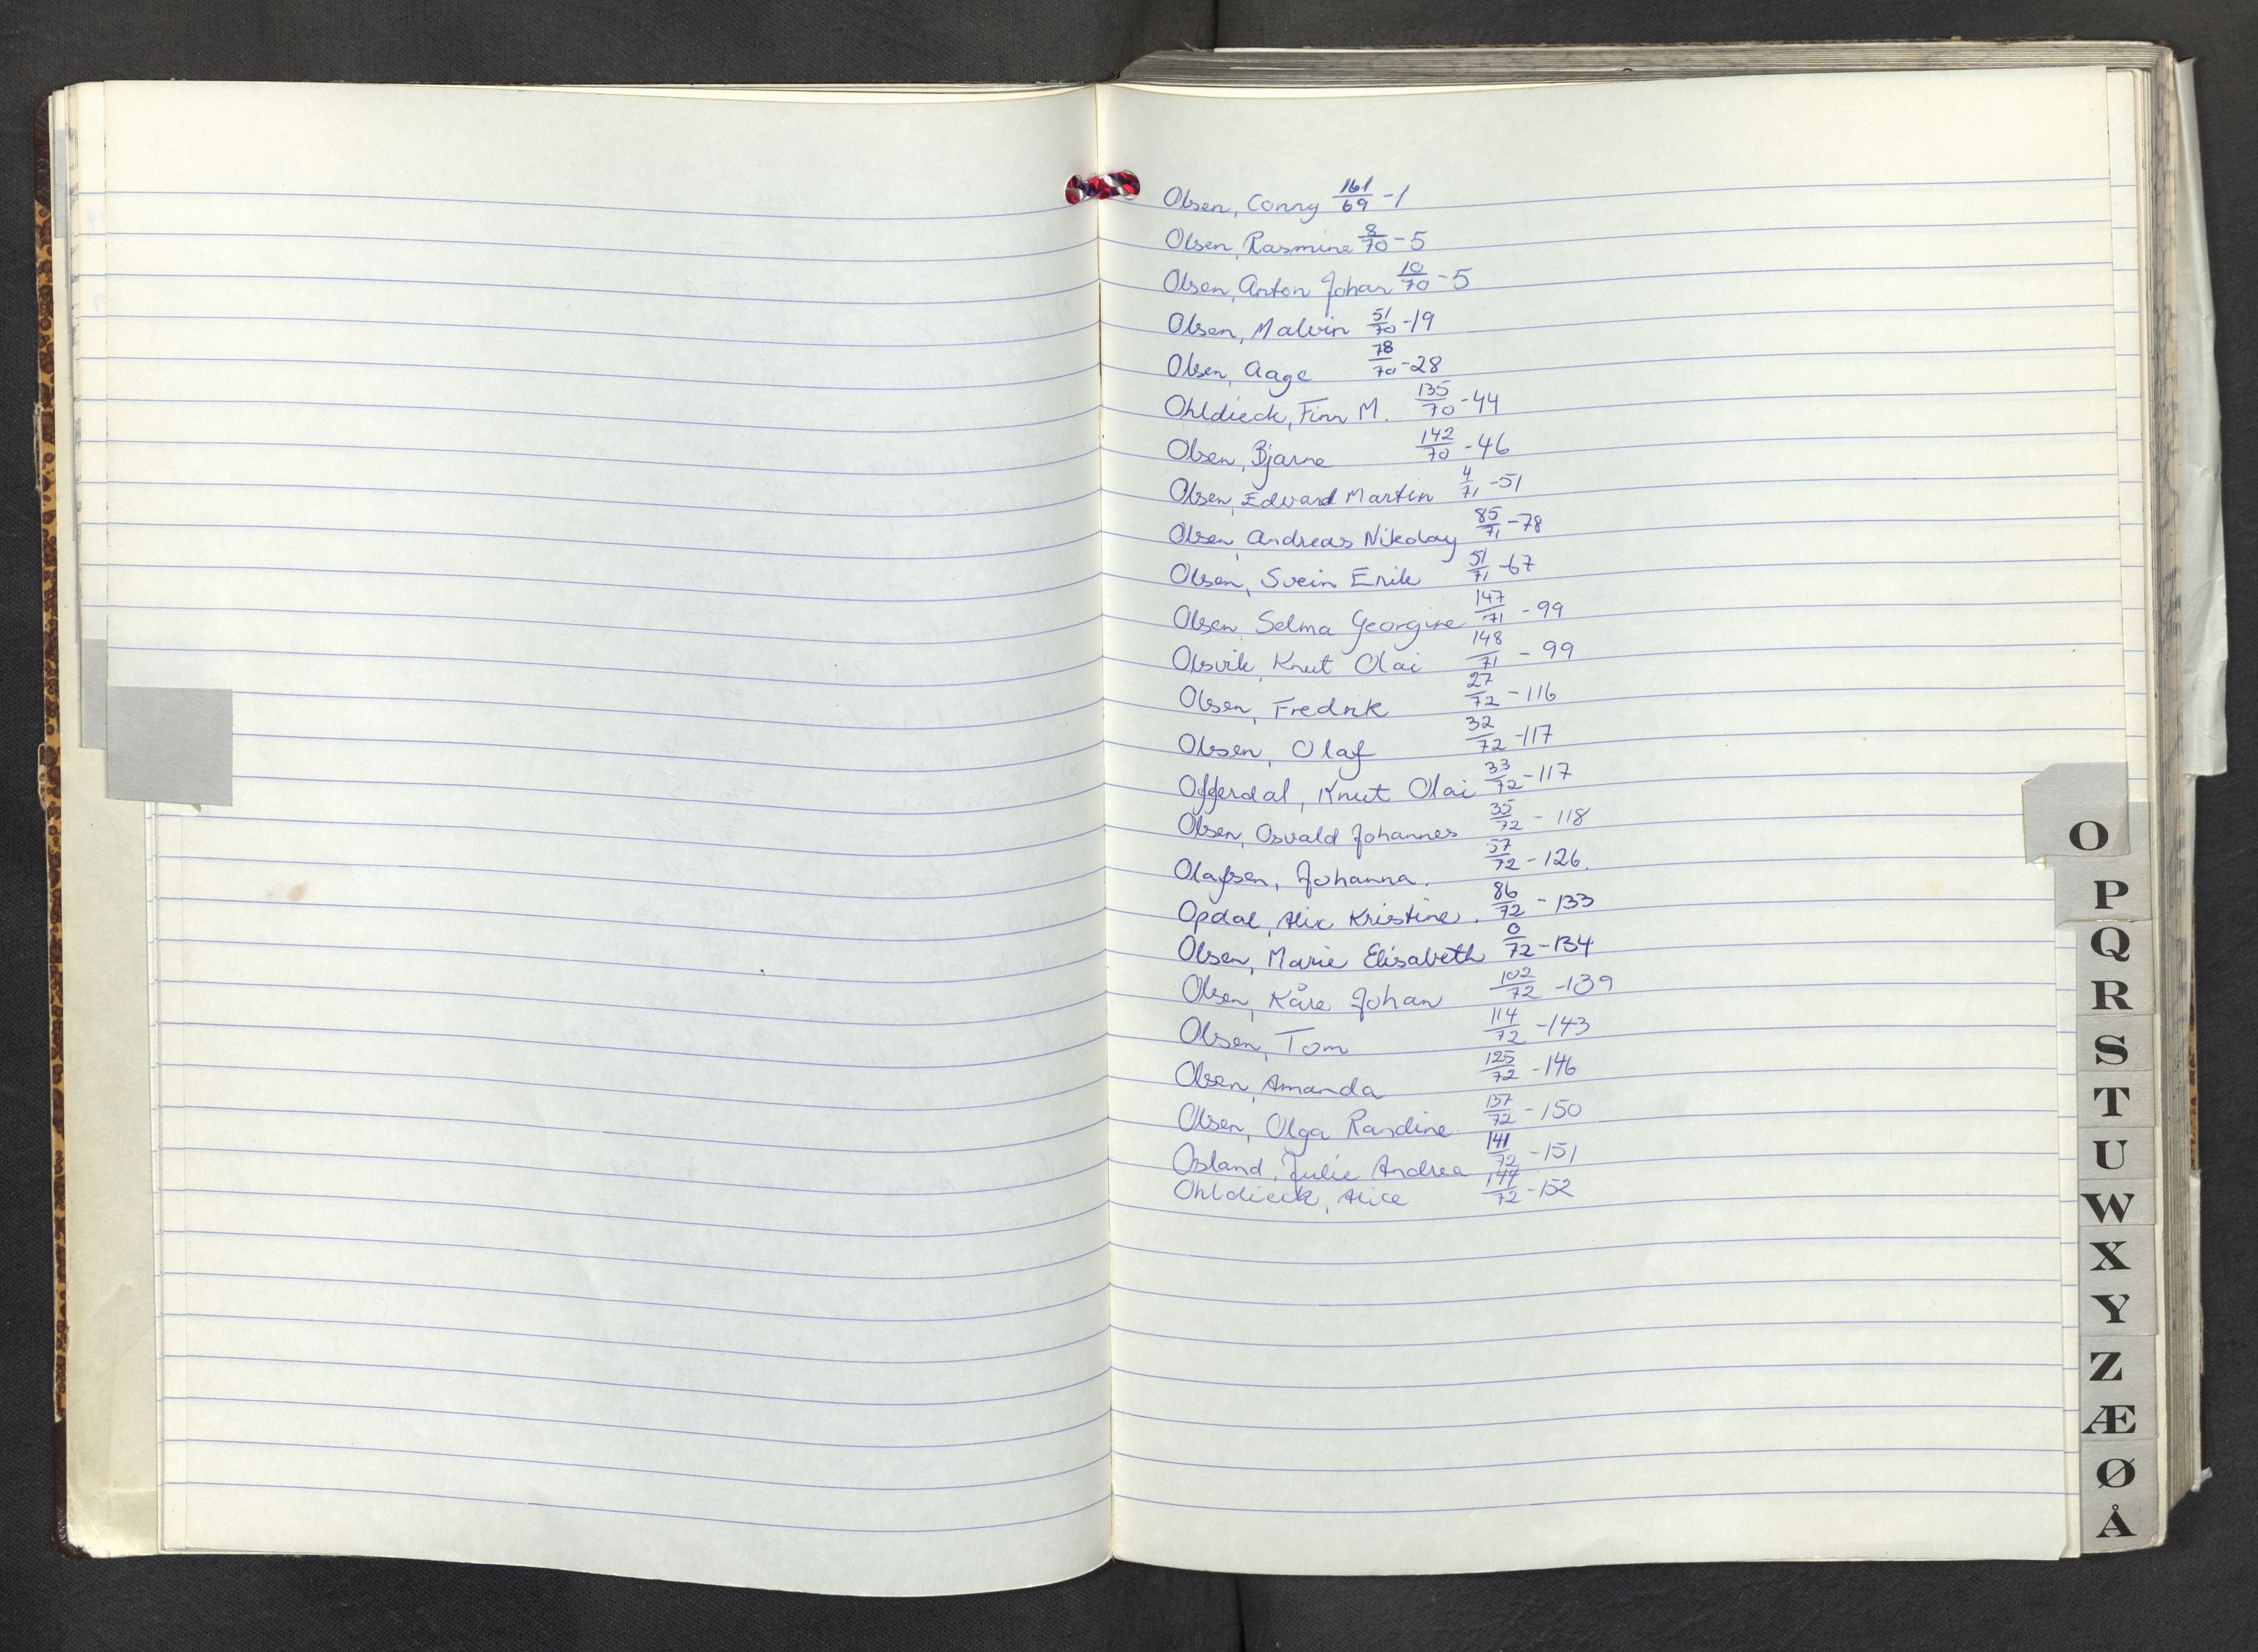 Olsen, Conny 161/69 - 1
Olsen, Rasmine 8/70 - 5
Olsen, Anton Johan 10/70 - 5
Olsen, Malvin 51/70 - 19
Olsen, Aage 78/70 - 28
Ohldieck, Finn M. 135/70 - 44
Olsen, Bjarne 142/70 - 46
Olsen, Edvard Martin 4/71 - 51
Olsen, Andreas Nikolay 85/71 - 78
Olsen, Svein Erik 51/71 - 67
Olsen, Selma Georgine 147/71 - 99
Olsvik, Knut Olai 148/71 - 99
Olsen, Fredrik 27/72 - 116
Olsen, Olaf 32/72 - 117
Offerdal, Knut Olai 33/72 - 117
Olsen, Osvald Johannes 35/72 - 118
Olafsen, Johanna. 57/72 - 126.
Opdal, Alix Kristine. 86/72 - 133
Olsen, Marie Elisabeth 0/72 - 134
Olsen, Kåre Johan 102/72 - 139
Olsen, Tom 114/72 - 143
Olsen, Amanda 125/72 - 146
Olsen, Olga Randine 137/72 - 150
Osland, Julie Andrea 141/72 - 151
Ohldieck, Alice 144/72 - 152
O
P
Q
R
S
T
U
W
X
Y
Z
Æ
Ø
Å